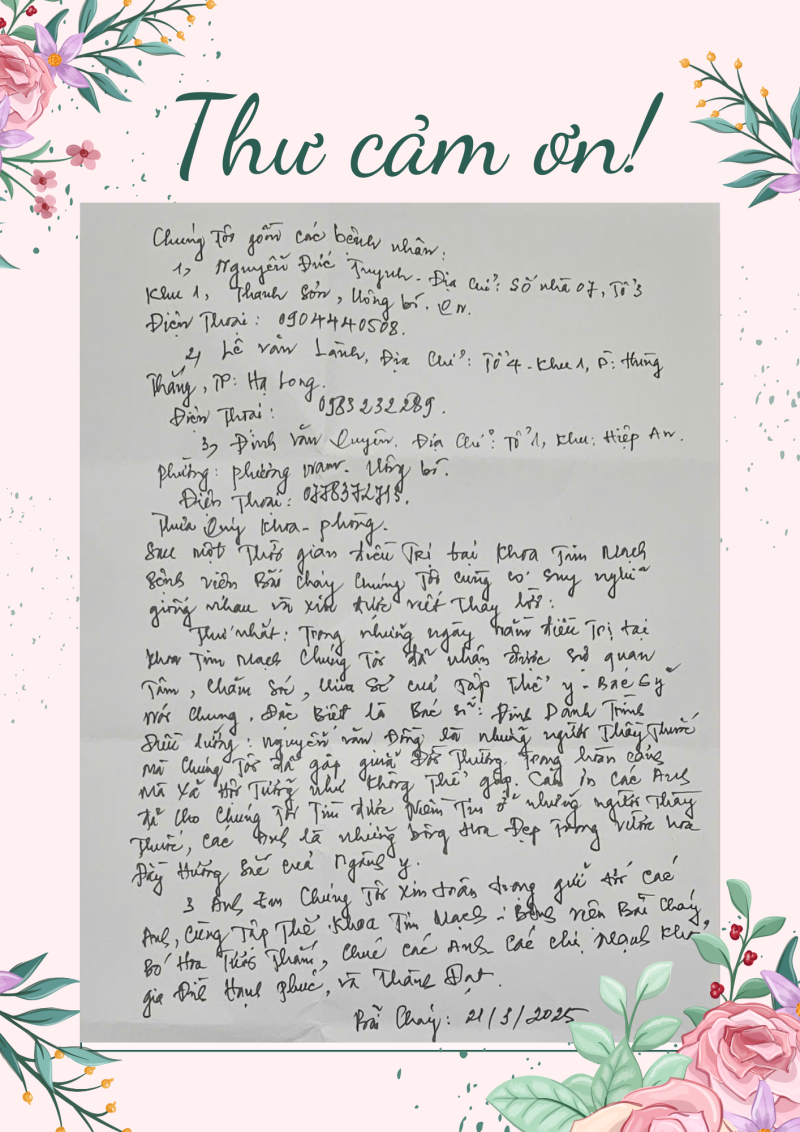 Thư cảm ơn!
Chúng Tôi gồm các bệnh nhân:
1, Nguyễn Đức Truynh - Địa chỉ: Số nhà 07, Tổ 3
Khu 1, Thanh Sơn, Uông bí. QN.
Điện Thoại: 0904440508.
2, Lê Văn Lành, Địa chỉ: Tổ 4 - Khu 1, P: Hùng
Thắng, TP: Hạ Long.
Điện Thoại: 0983 232 289.
3, Đinh Văn Quyên. Địa chỉ: Tổ 1, Khu: Hiệp An.
phường: phương nam. Uông bí.
Điện Thoại: 0778372713.
Thưa Quý Khoa - phòng.
Sau một Thời gian điều Trị tại Khoa Tim Mạch
Bệnh viện Bãi Cháy chúng Tôi cùng có suy nghĩ
giống nhau và xin được viết Thay lời:
Thứ nhất: Trong những ngày nằm điều Trị tại
Khoa Tim Mạch chúng Tôi đã nhận được sự quan
Tâm, Chăm Sóc, của Tập Thể y - Bác Sỹ
nói chung. Đặc Biệt là Bác sĩ: Đinh Danh Trình
Điều dưỡng: Nguyễn Văn Đông là những người Thầy Thuốc
mà chúng Tôi đã gặp giữa Đời Thường Trong hoàn cảnh
mà Xã Hội Tưởng như không Thể gặp. Cảm ơn các Anh
đã cho chúng Tôi Tìm được Niềm Tin ở những người Thầy
Thuốc, các Anh là những bông Hoa Đẹp Trong vườn hoa
Đầy Hương Sắc của Ngành y.
3 Anh Em Chúng Tôi xin trân trọng gửi tới các
Anh, cùng Tập Thể Khoa Tim Mạch - Bệnh viện Bãi Cháy,
Bó Hoa Tươi Thắm, chúc các Anh các chị mạnh Khỏe,
gia Đình Hạnh phúc, và Thành Đạt.
Bãi Cháy: 21/3/2025